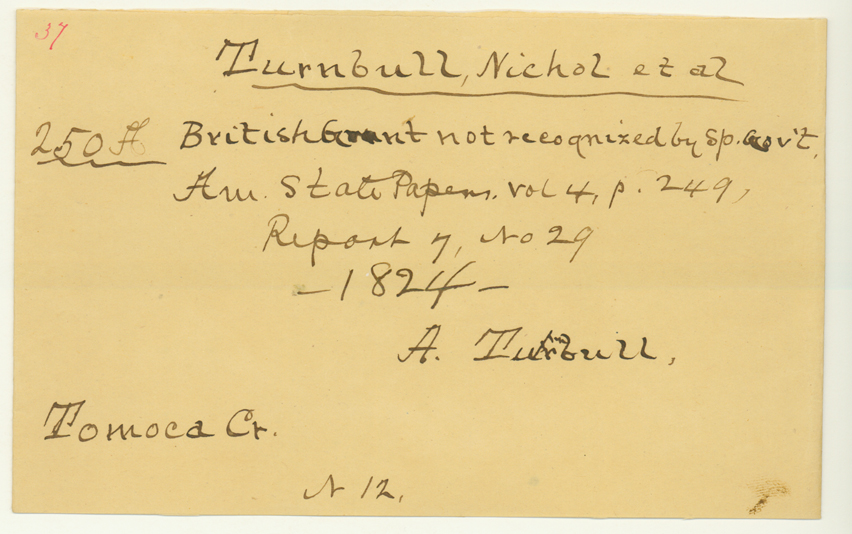 37
Turnbull, Nichol et al
250 A British Grant not recognized by Sp. Gov't.
Am. State Papers. vol 4, p. 249,
Report 7, No 29
- 1824 -
A. Turnbull,
Tomoca Cr.
N 12.